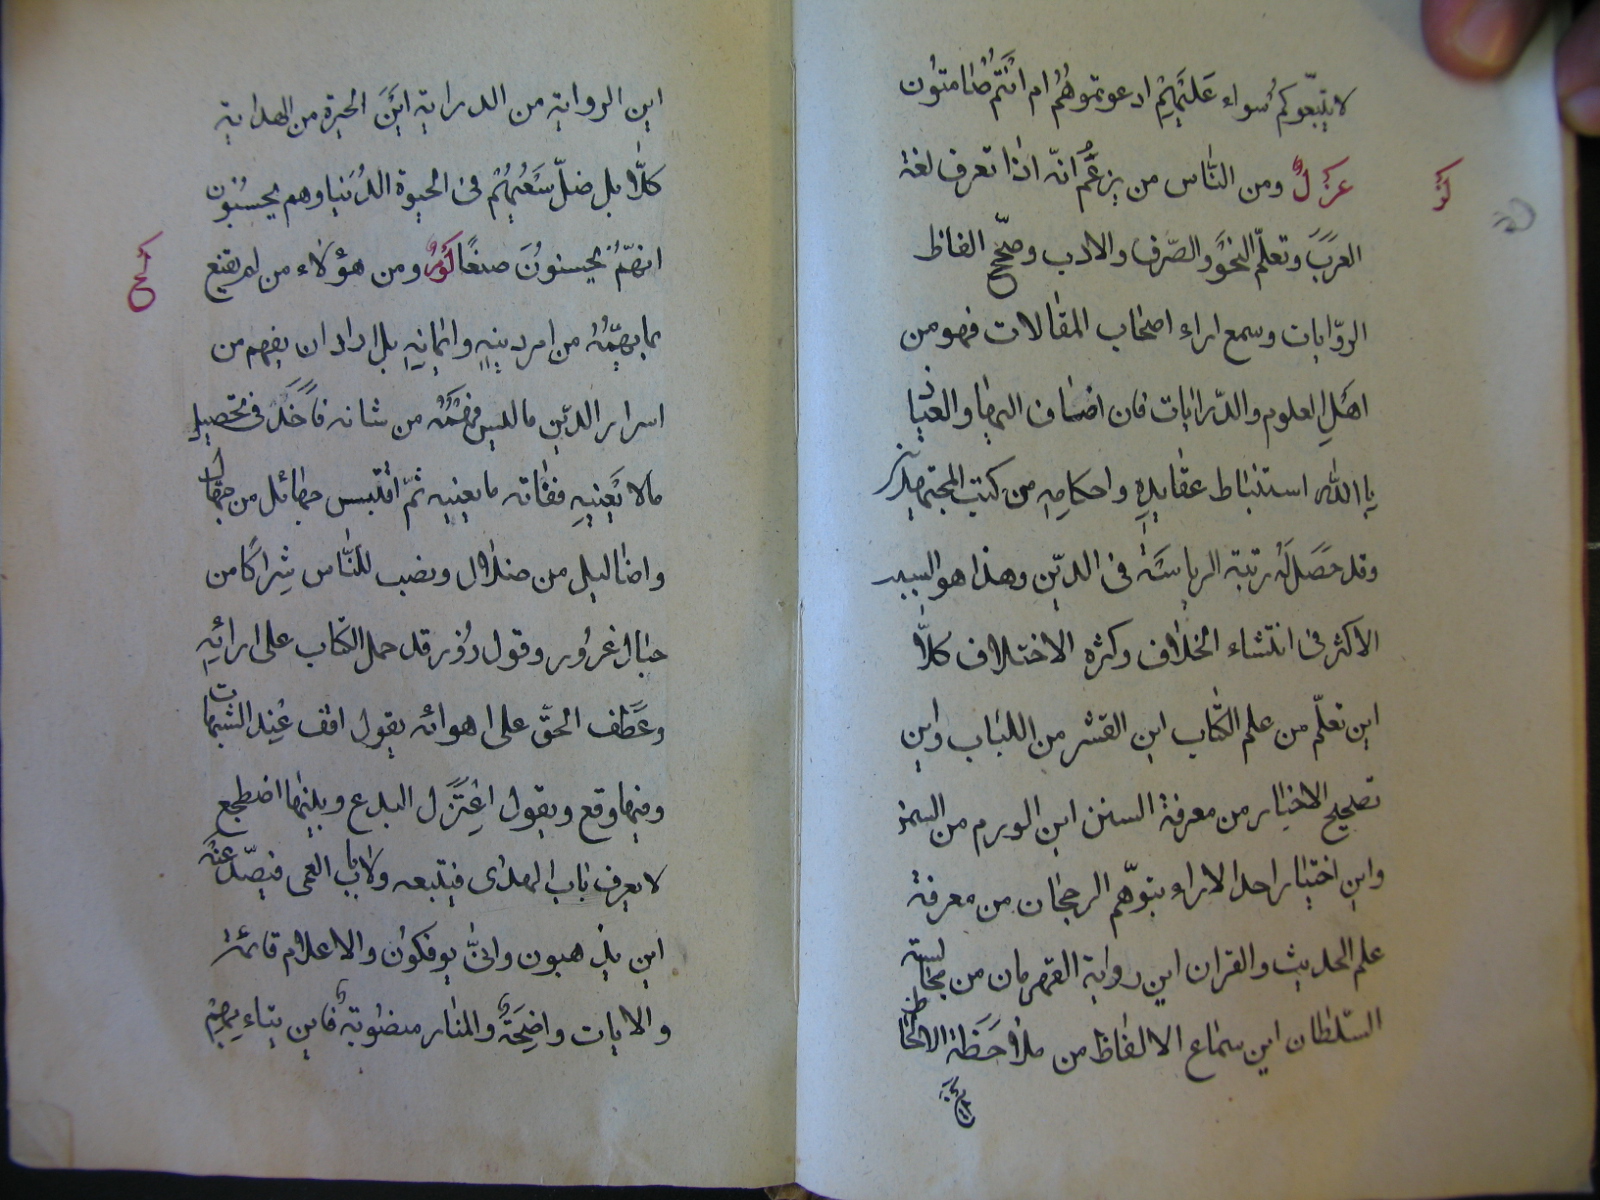 لا يتبعوكم سواء عليهم ادعوتموهم ام انتم صامتون
عزل ومن الناس من يزعم انه اذا تعرف لغة
العرب وتعلم النحو والصرف والادب وصحح الفاظ
الروايات وسمع اراء اصحاب المقالات فهو من
اهل العلوم والدرايات فان اضاف اليها والعياذ
بالله استنباط عقايده واحكامه من كتب المجتهدين
وقد حصل له رتبة الرياسة في الدين وهذا هو السبب
الاكثر في انتشاء الخلاف وكثرة الاختلاف كلا
اين تعلم من علم الكتاب اين القشر من اللباب واين
تصحيح الاخبار من معرفة السنن اين الورم من السمن
واين اختيار احد الاراء بتوهم الرجحان من معرفة
علم الحديث والقران اين رواية القهرمان من مجالسة
السلطان اين سماع الالفاظ من ملاحظة الالحاظ
اين الرواية من الدراية اين الحيرة من الهداية
كلا بل ضل سعيهم في الحيوة الدنيا وهم يحسبون
انهم يحسنون صنعا كور ومن هؤلاء من لم يقنع
بما يهمه من امر دينه وايمانه بل اراد ان يفهم من
اسرار الدين ما ليس فهمه من شانه فاخذ في تحصيل
مالا يعنيه ففاته ما يعنيه ثم اقتبس جهائل من جهال
واضاليل من ضلال ونصب للناس شراكا من
حبال غرور وقول زور قد حمل الكتاب على ارائه
وعطف الحق على اهوائه يقول اقف عند الشبهات
وفيها وقع ويقول اعتزل البدع وبينها اضطجع
لا يعرف باب الهدى فيتبعه ولا باب العمى فيصد عنه
اين يذهبون وانى يوفكون والاعلام قائمة
والايات واضحة والمنار منصوبة فاين يتاه بهم